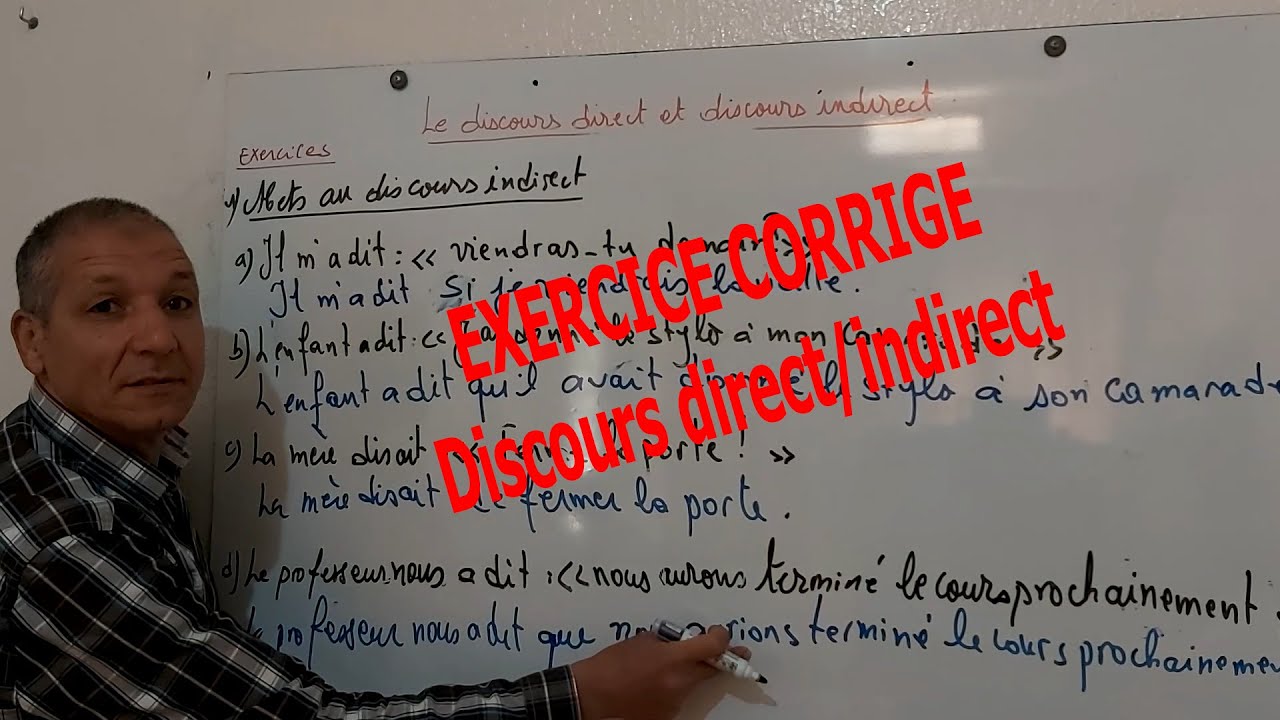 Le discours direct et discours indirect
Exercices
1) Mets au discours indirect
a) Il m'a dit : « viendras-tu demain? »
Il m'a dit si je viendrais la veille.
EXERCICE CORRIGE
b) L'enfant a dit : « le stylo à mon »
L'enfant a dit qu'il avait le stylo à son camarade
Discours direct/indirect
c) La mère disait « porte ! »
La mère disait de fermer la porte.
d) Le professeur nous a dit : « nous aurons terminé le cours prochainement
professeur nous a dit que terminé le cours prochaineme